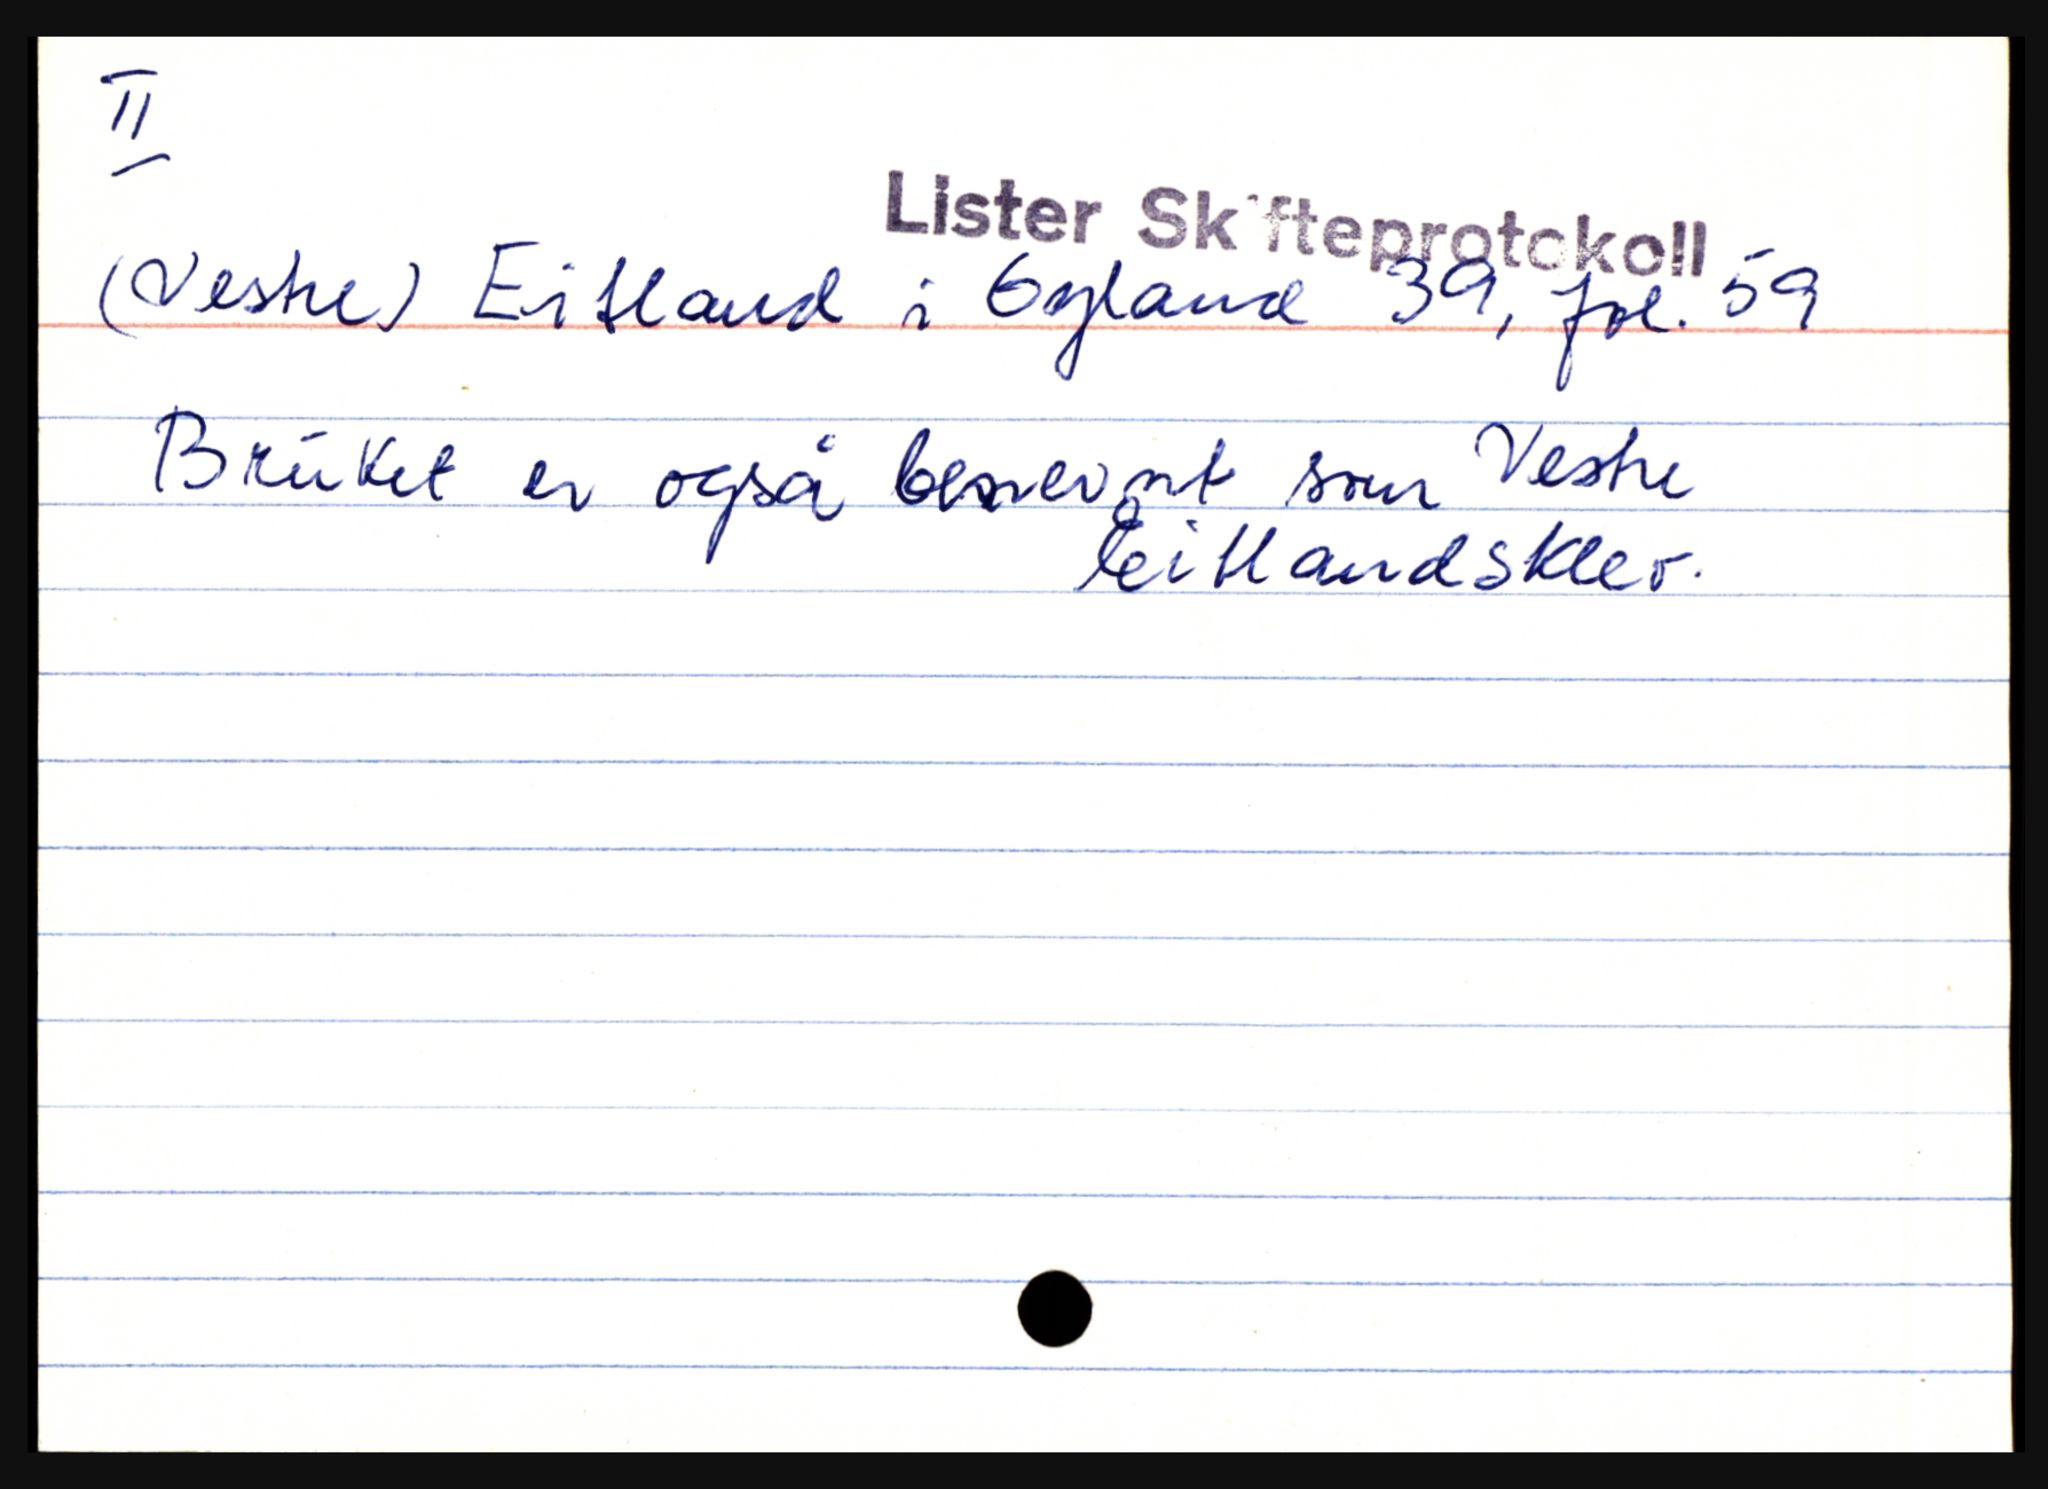 II
Lister Skifteprotokoll
(Vestre) Eitland i Gyland 39, fol. 59
Brüket er også benevnt som Vestre
Eitlandsklev.